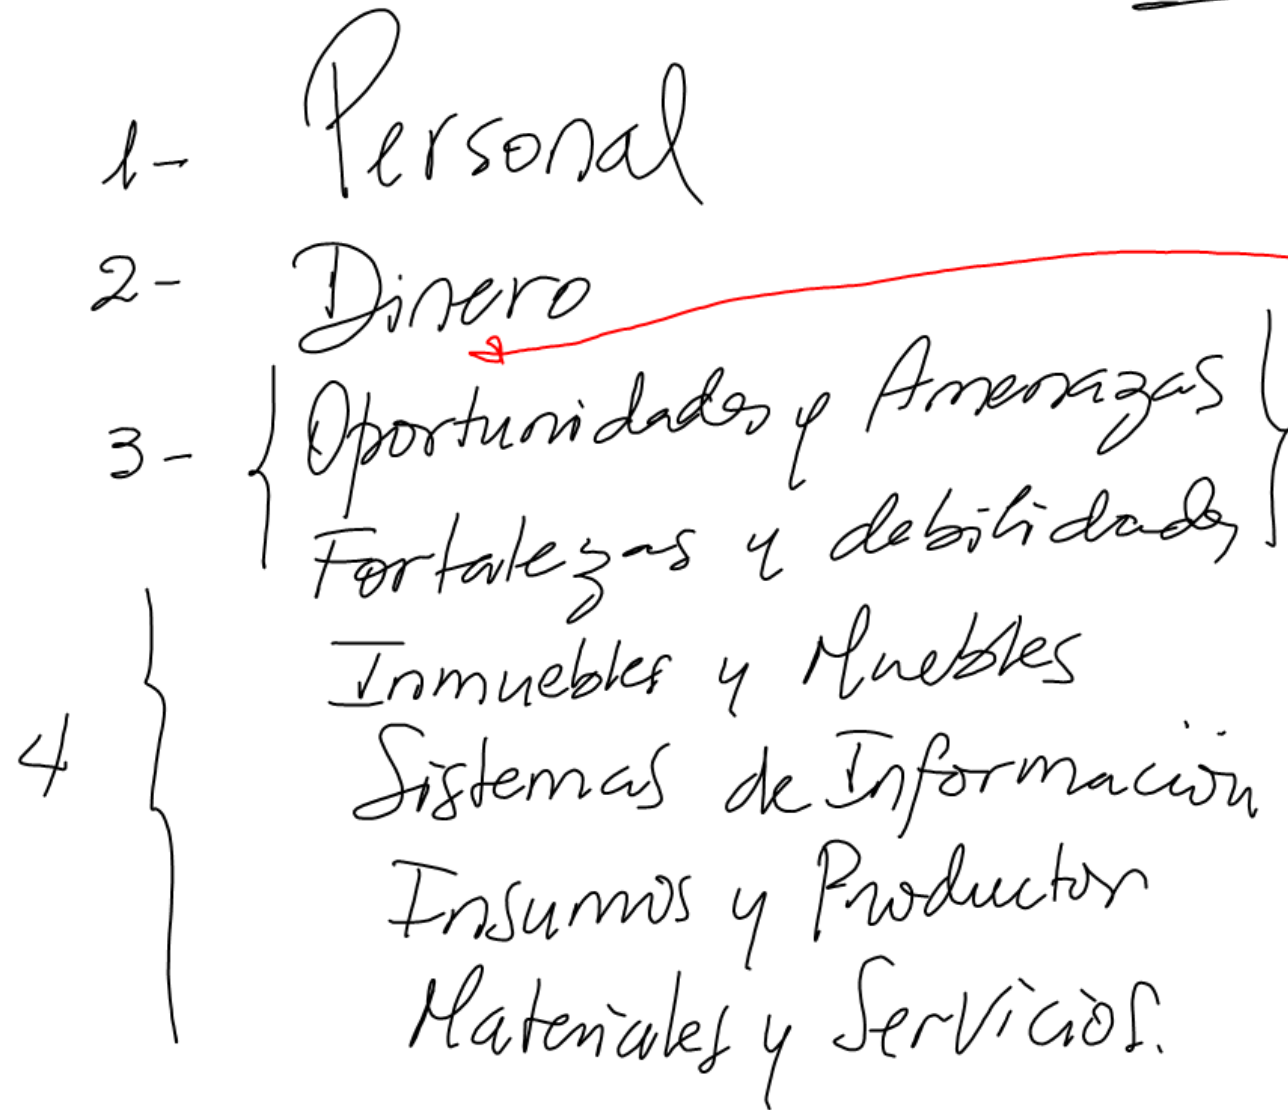 1- Personal
2- Dinero
3- Oportunidades y Amenazas
Fortalezas y debilidades
Inmuebles y Muebles
4 Sistemas de Información
Insumos y Productos
Materiales y Servicios.